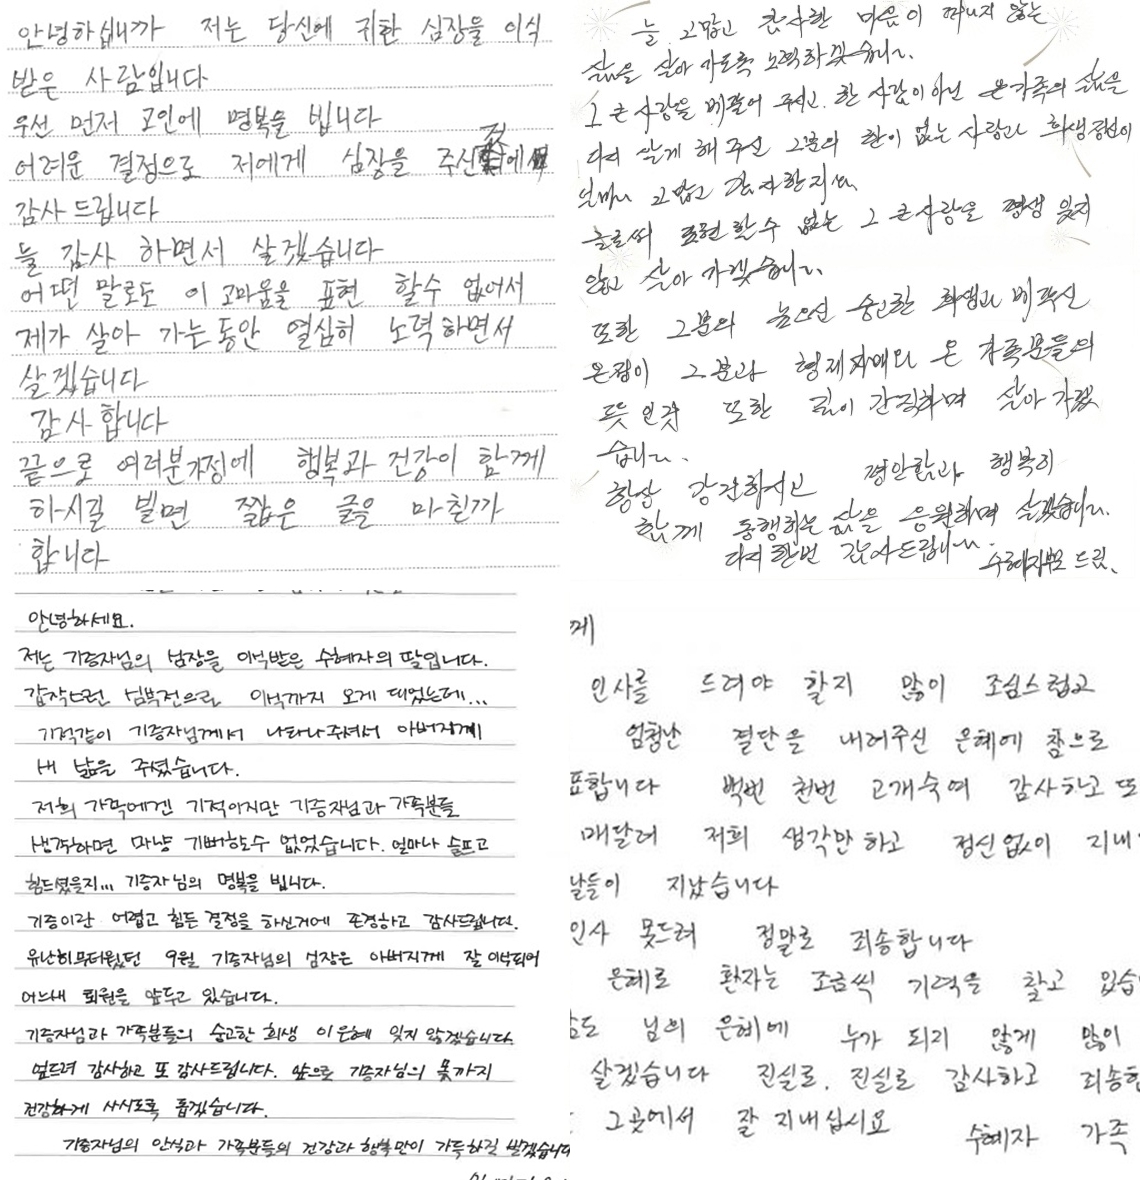 안녕하십니까 저는 당신에 귀한 심장을 이식
받은 사람입니다
우선 먼저 고인에 명복을 빕니다
어려운 결정으로 저에게 심장을 주신
감사드립니다
늘 감사 하면서 살겠습니다
어떤 말로도 이 고마움을 표현 할수 없어서
제가 살아 가는동안 열심히 노력하면서
살겠습니다
감사합니다
끝으로 여러분가정에 행복과 건강이 함께
하시길 빌면 짧은 글을 마칠까
합니다
늘 고맙고 감사한 마음이 떠나지 않는
삶을 살아 가도록 노력하겠습니다.
그 큰 사랑을 베풀어 주시고. 한 사람이 아닌 온가족의 삶을
다시 살게 해 주신 그분의 한이 없는 사랑과 희생정신이
얼마나 고맙고 감사한지요.
글로써 표현 할수 없는 그 큰 사랑을 평생 잊지
않고 살아 가겠습니다.
또한 그분의 높으신 숭고한 희생과 베푸신
온정이 그분과 형제자매와 온 가족분들의
뜻인것 또한 깊이 간직하며 살아 가겠
습니다.
항상 강건하시고 평안함과 행복이
함께 동행하는 삶을 응원하며 살겠습니다.
다시 한번 감사드립니다.
수혜자부모 드림.
안녕하세요.
저는 기증자님의 심장을 이식받은 수혜자의 딸입니다.
갑작스런 심부전으로 이식까지 오게 되었는데...
기적같이 기증자님께서 나타나주셔서 아버지께
새 삶을 주셨습니다.
저희 가족에겐 기적이지만 기증자님과 가족분들
생각하면 마냥 기뻐할수 없었습니다. 얼마나 슬프고
힘드셨을지... 기증자님의 명복을 빕니다.
기증이란 어렵고 힘든 결정을 하신거에 존경하고 감사드립니다.
유난히무더웠던 9월 기증자님의 심장은 아버지께 잘 이식되어
어느새 퇴원을 앞두고 있습니다.
기증자님과 가족분들의 숭고한 희생 이 은혜 잊지 않겠습니다.
엎드려 감사하고 또 감사드립니다. 앞으로 기증자님의 몫까지
건강하게 사시도록 돕겠습니다.
기증자님의 안식과 가족분들의 건강과 행복만이 가득하길 빌겠습니다
께
인사를 드려야 할지 많이 조심스럽고
엄청난 결단을 내려주신 은혜에 참으로
표합니다 백번 천번 고개숙여 감사하고 또
매달려 저희 생각만 하고 정신없이 지내
날들이 지났습니다
인사 못드려 정말로 죄송합니다
은혜로 환자는 조금씩 기력을 찾고 있습
님의 은혜에 누가 되지 않게 많이
살겠습니다 진실로, 진실로 감사하고 죄송합
그곳에서 잘 지내십시요
수혜자 가족